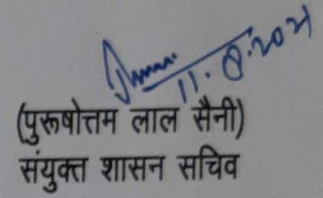 11.8.2021
(पुरूषोत्तम लाल सैनी)
संयुक्त शासन सचिव